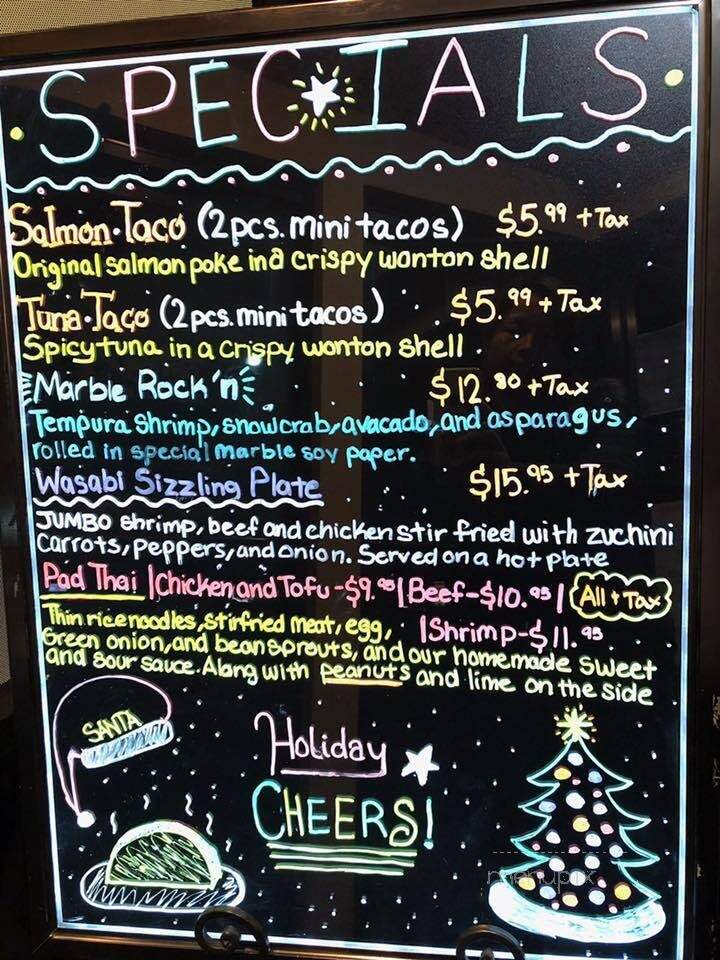 SPECIALS
Salmon·Taco (2pcs. mini tacos) $5.99 + Tax
Original salmon poke in a crispy wonton shell
Tuna·Taco (2pcs. mini tacos) $5.99 + Tax
Spicy tuna in a crispy wonton shell
Marble Rock'n $12.80 + Tax
Tempura Shrimp, snowcrab, avacado, and asparagus,
rolled in special marble soy paper.
Wasabi Sizzling Plate $15.95 + Tax
JUMBO shrimp, beef and chicken stir fried with zuchini
Carrots, Peppers, and onion. Served on a hot plate
Pad Thai | Chicken and Tofu - $9.95 | Beef - $10.95 | All + Tax
Thin rice noodles, stirfried meat, egg, | Shrimp - $11.95
Green onion, and beansprouts, and our homemade sweet
and sour sauce. Along with peanuts and lime on the side
SANTA
Holiday
CHEERS!
menupix